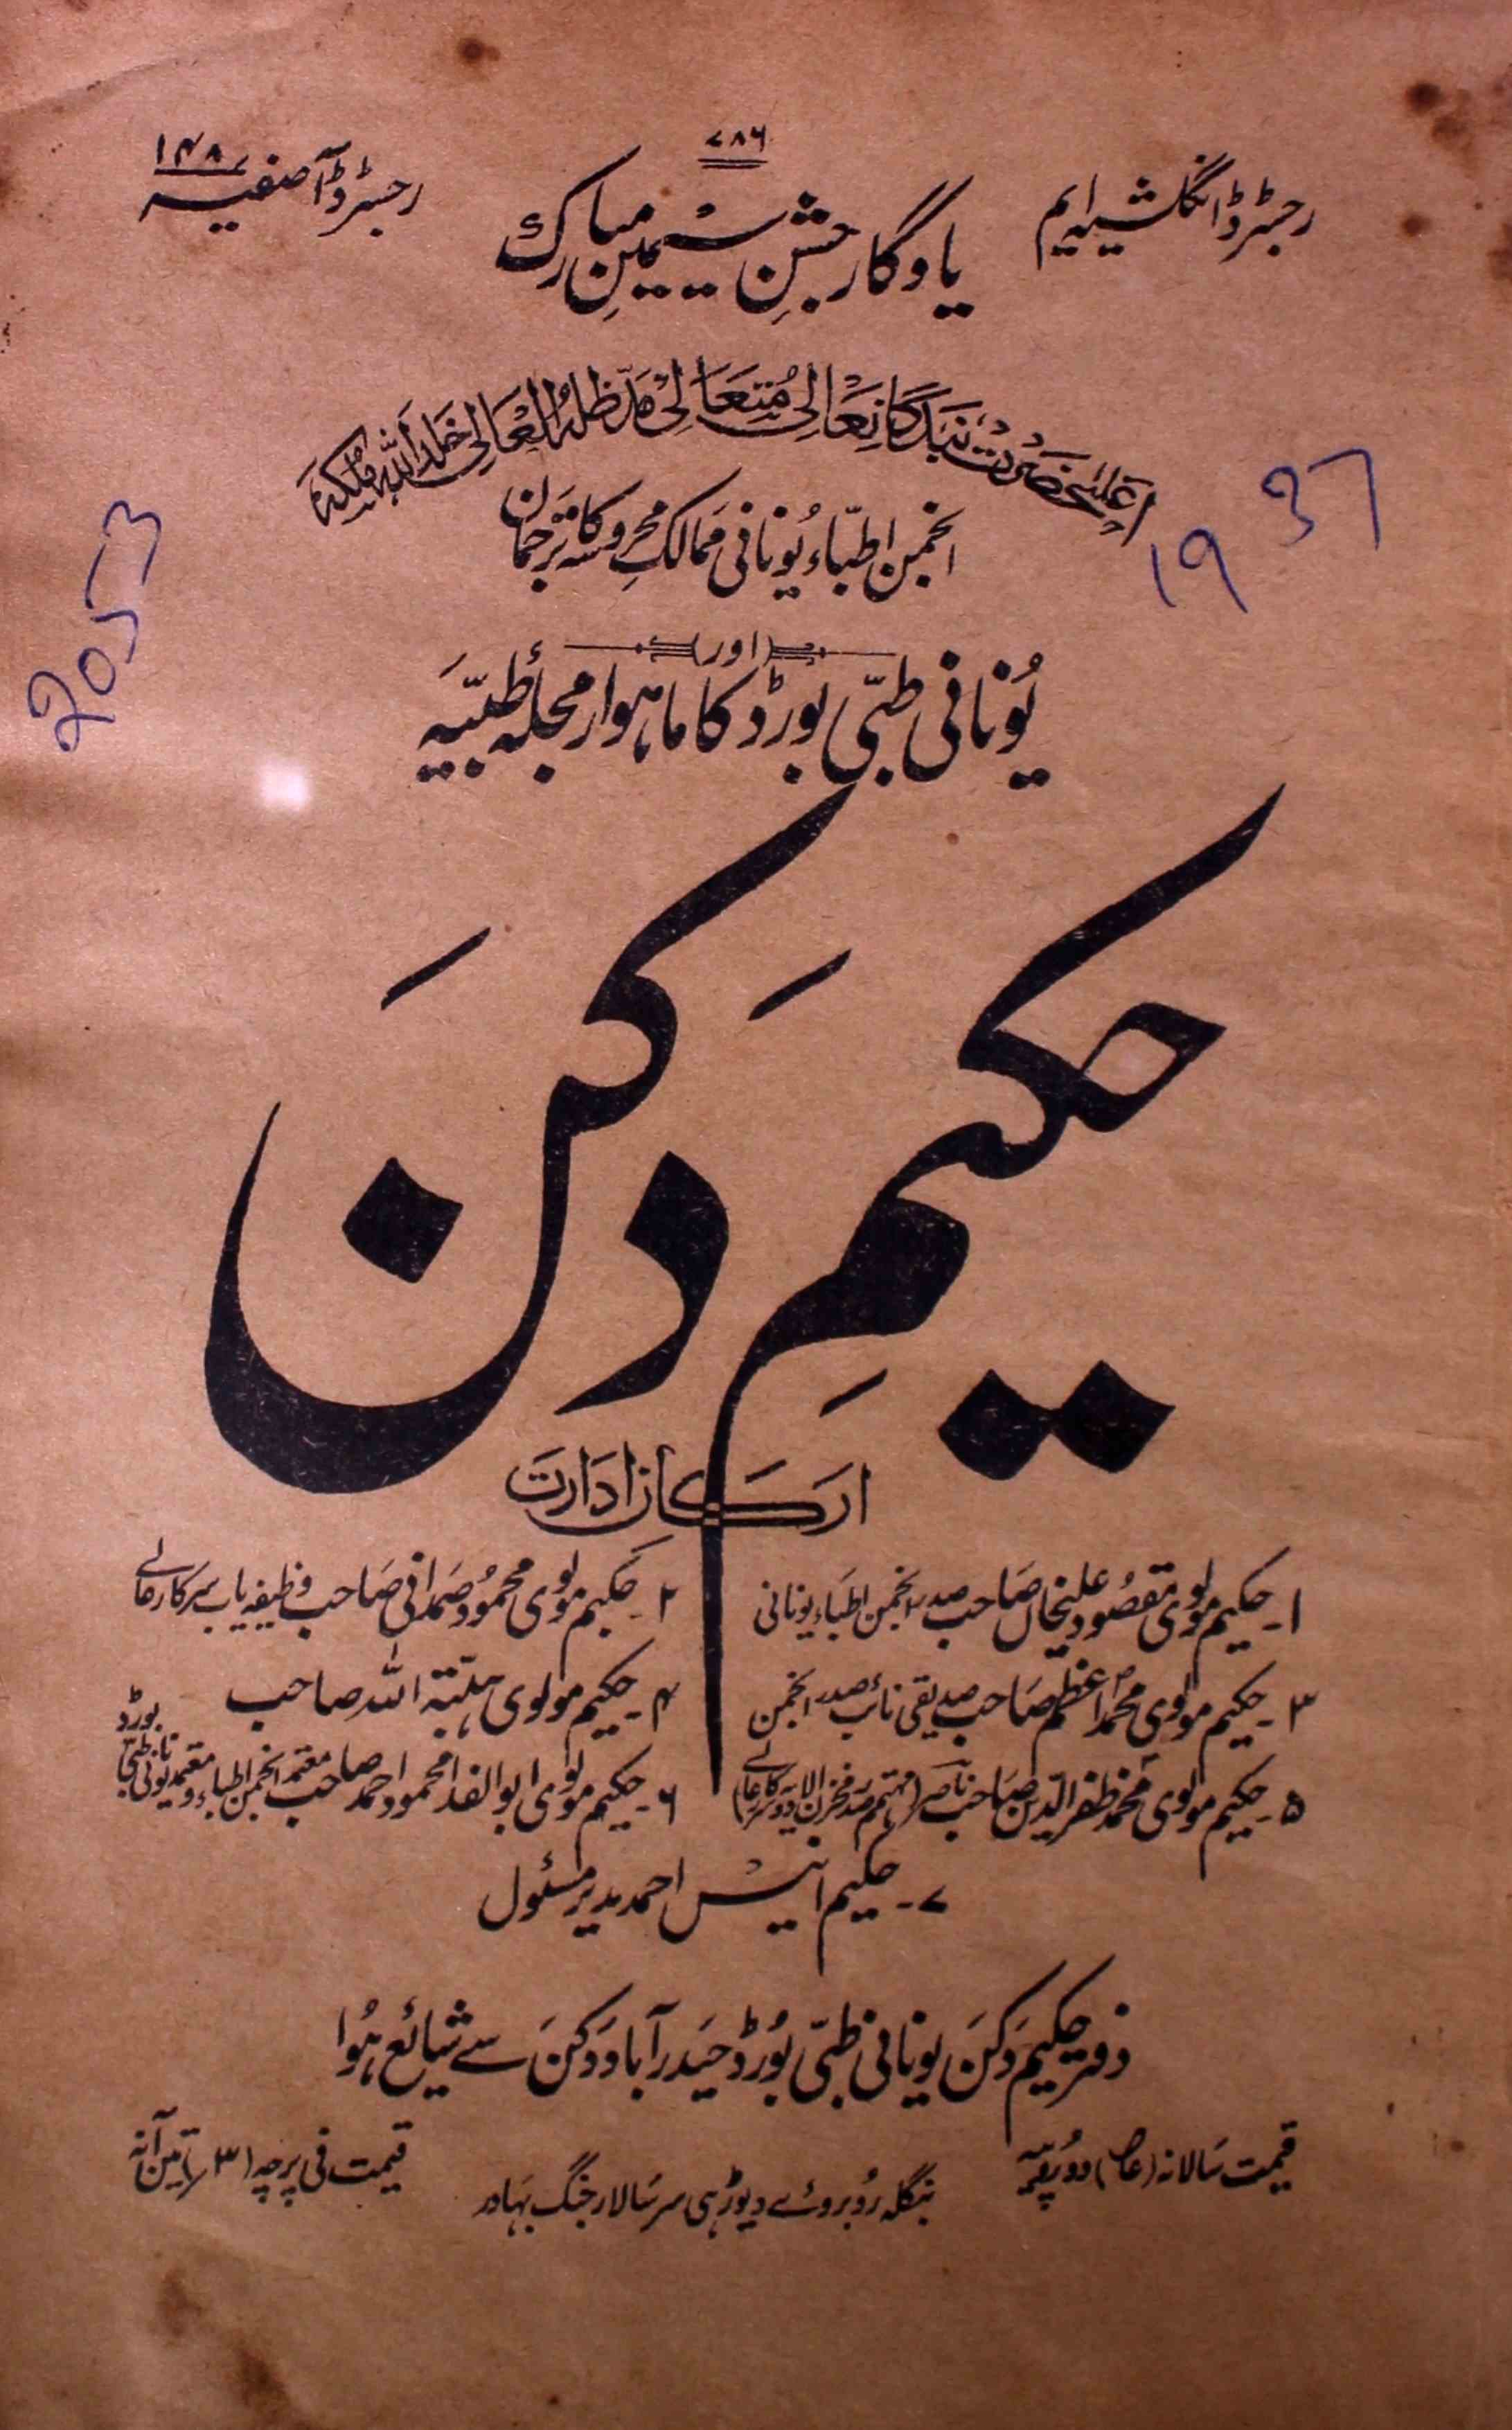 ۷۸۶
رجسٹرڈ انگلشیہ ایم
یادگار جشنِ سیمینِ مبارک
رجسٹرڈ آصفیہ ۱۴۸
اعلیٰحضرت بندگانعالی متعالی مدظلہ العالی خلد اللہ ملکہ
1937
2053
انجمن اطبّاء یُونانی ممالک محروسہ کا ترجمان
(اور)
یُونانی طبّی بورڈ کا ماہوار مجلہ طبّیہ
حکیمِ دَکنَ
ارکان ادارت
۱۔ حکیم مولوی مقصود علیخاں صاحب صدر انجمن اطباء یونانی
۲۔ حکیم مولوی محمود صمدانی صاحب وظیفہ یاب سرکار عالی
۳۔ حکیم مولوی محمد اعظم صاحب صدیقی نائب صدر انجمن
۴۔ حکیم مولوی ہبتہ اللہ صاحب
۵۔ حکیم مولوی محمد ظفر الدین صاحب ناصر (مہتمم صدر مخزن الادویہ سرکار عالی)
۶۔ حکیم مولوی ابوالفدا محمود احمد صاحب معتمد انجمن اطباء و معتمد یونانی طبی بورڈ
۷۔ حکیم انیس احمد مدیر مسئول
دفتر حکیم دَکنَ یونانی طبّی بُورڈ حَیدرآباد دَکنَ سے شائع ہُوا
قیمت سَالانہ (عا) دو رُوپیہ
بنگلہ رُوبروئے دیوڑہی سر سَالار جنگ بَہادر
قیمت فی پرچہ (۳؍) تین آنہ